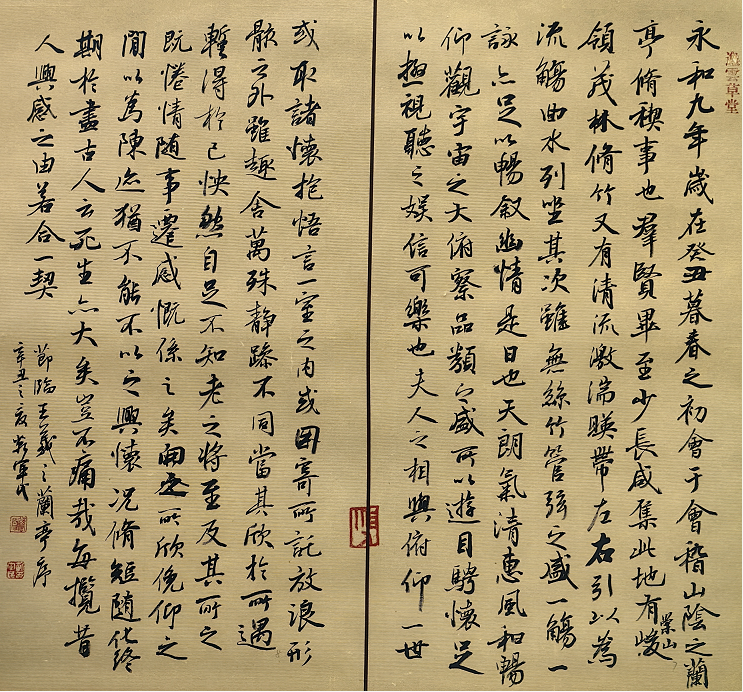 雲草堂
永和九年歲在癸丑暮春之初會于會稽山陰之蘭
亭脩稧事也羣賢畢至少長咸集此地有崇山峻
領茂林脩竹又有清流激湍暎帶左右引以為
流觴曲水列坐其次雖無絲竹管弦之盛一觴一
詠亦足以暢叙幽情是日也天朗氣清惠風和暢
仰觀宇宙之大俯察品類之盛所以遊目騁懷足
以極視聽之娛信可樂也夫人之相與俯仰一世
或取諸懷抱悟言一室之內或因寄所託放浪形
骸之外雖趣舍萬殊靜躁不同當其欣於所遇
蹔得於己怏然自足不知老之將至及其所之
既惓情隨事遷感慨係之矣向之所欣俛仰之
閒以為陳迹猶不能不以之興懷況脩短隨化終
期於盡古人云死生亦大矣豈不痛哉每攬昔
人興感之由若合一契
節臨王羲之蘭亭序
辛丑之夏